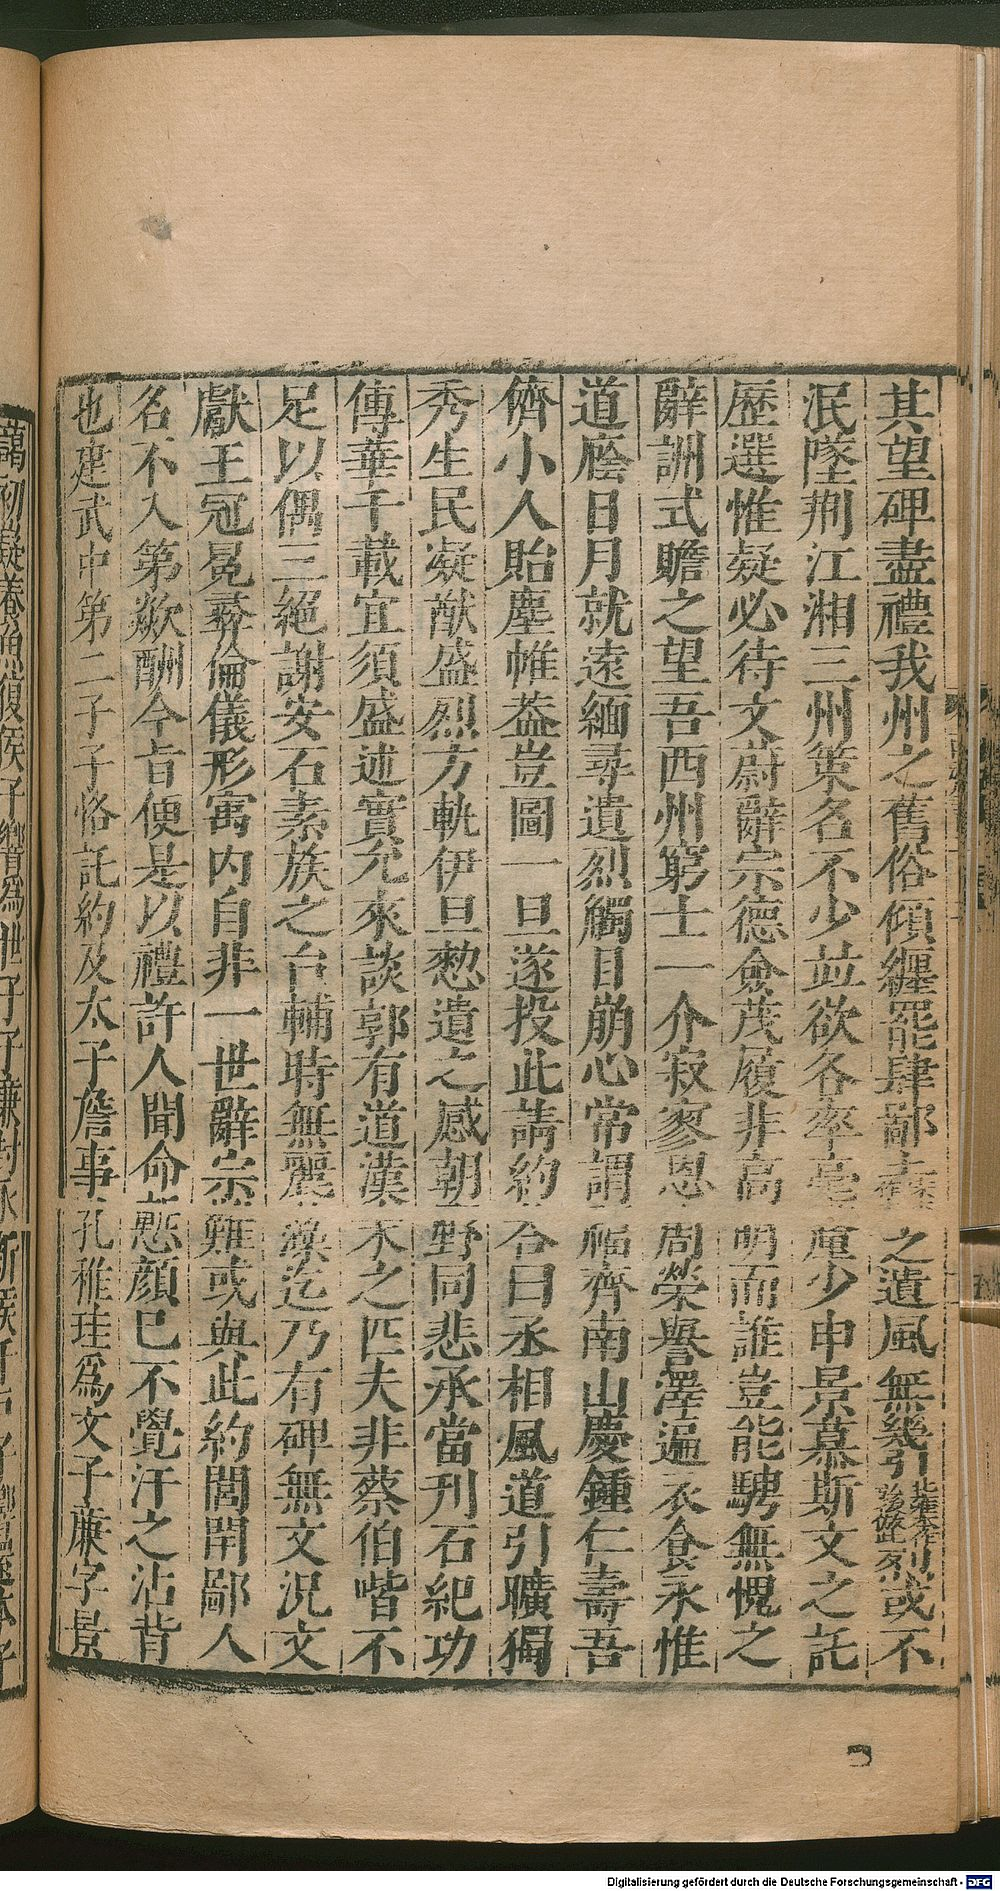 其望碑盡禮我州之舊俗傾纏罷肆鄙士之遺風無幾引或不
泯墜荆江湘三州策名不少竝欲各率毫釐少申景慕斯文之託
歷選惟疑必待文蔚辭宗德僉茂履非高明而誰豈能騁無愧之
辭詶式瞻之望吾西州窮士一介寂寥恩周榮譽澤遍衣食永惟
道廕日月就遠緬尋遺烈觸目崩心常謂福齊南山慶鍾仁壽吾
儕小人貽塵帷蓋豈圖一旦遂投此請約荅曰丞相風道引曠獨
秀生民凝猷盛烈方軌伊旦愸遺之感朝野同悲承當刊石紀功
傳華千載宜須盛述實允來談郭有道漢末之匹夫非蔡伯喈不
足以偶三絕謝安石素族之台輔時無麗藻迄乃有碑無文況文
獻王冠冕彝倫儀形寓内自非一世辭宗難或與此約閭閈鄙人
名不入第歘酬今旨便是以禮許人聞命慙顏巳不覺汗之沾背
也建武中第二子子恪託約及太子詹事孔稚珪爲文子廉字景
Digitalisierung gefördert durch die Deutsche Forschungsgemeinschaft - DFG